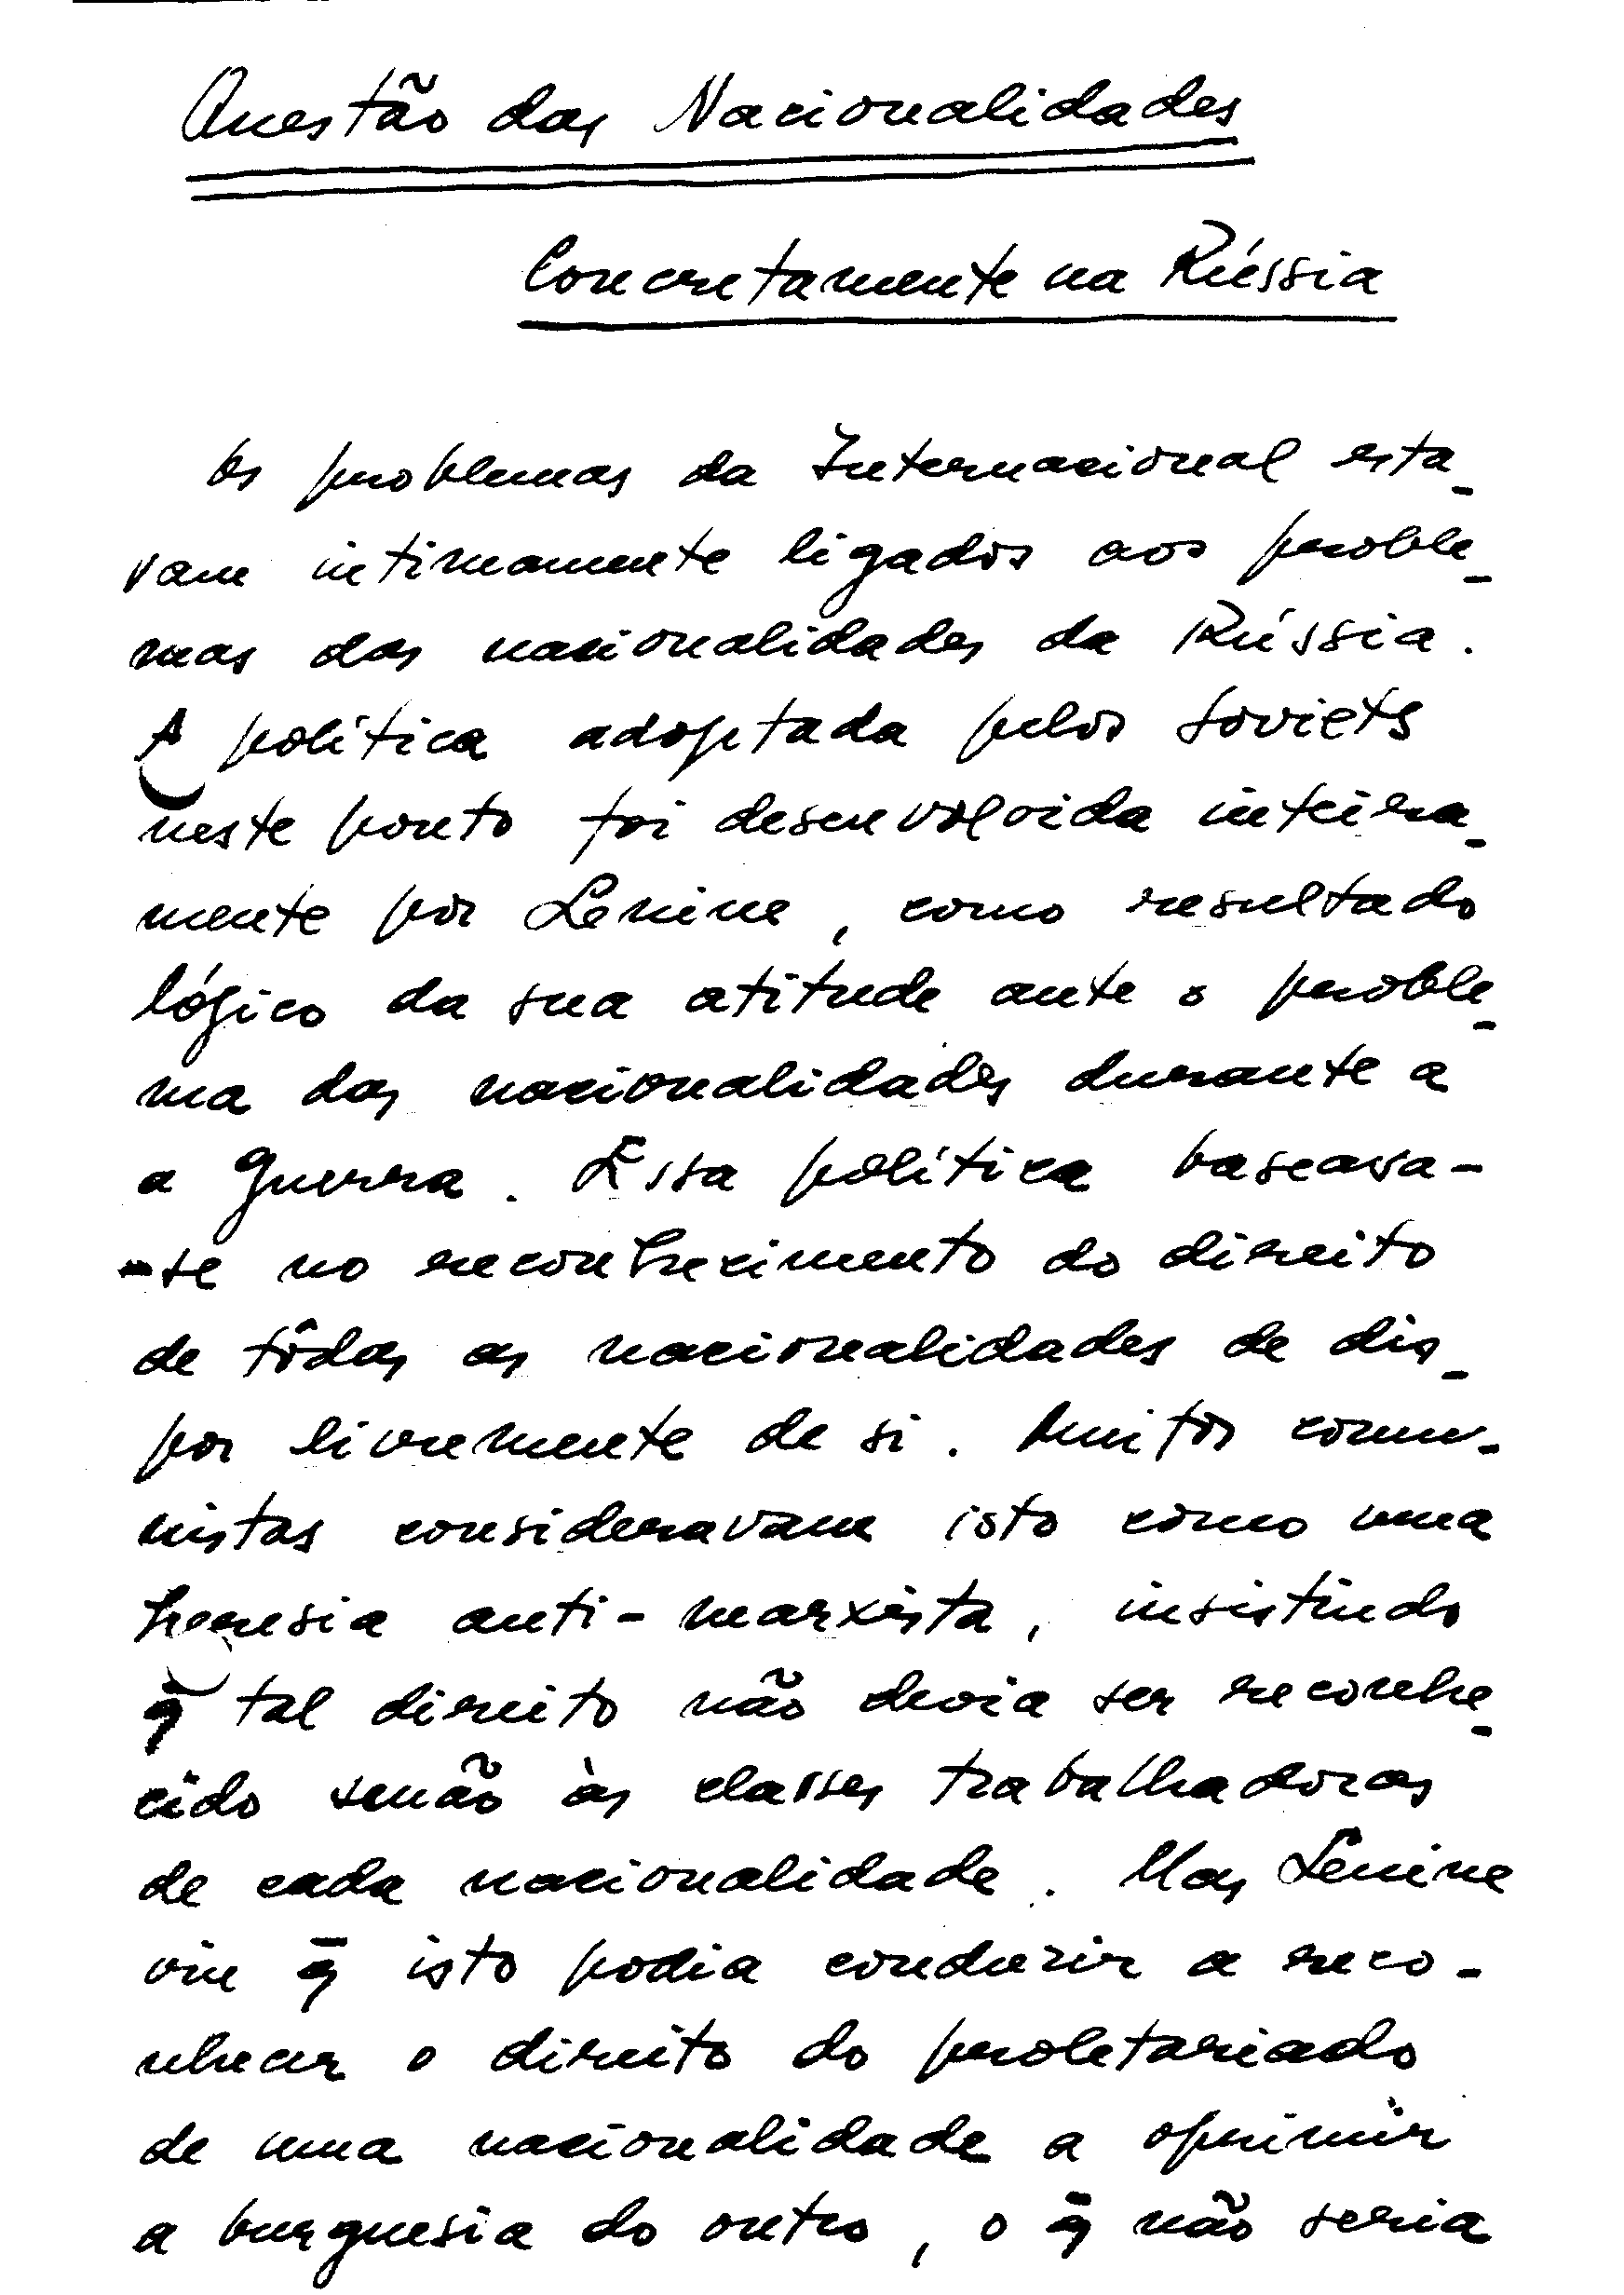 Questão das Nacionalidades
Concretamente na Rússia
Os problemas da Internacional esta-
vam intimamente ligados aos proble-
mas das nacionalidades da Rússia.
A política adoptada pelos Soviets
neste ponto foi desenvolvida inteira-
mente por Lenine, como resultado
lógico da sua atitude ante o proble-
ma das nacionalidades durante a
a guerra. Essa política baseava-
-se no reconhecimento do direito
de tôdas as nacionalidades de dis-
por livremente de si. Muitos comu-
nistas consideravam isto como uma
heresia anti-marxista, insistindo
q̄ tal direito não devia ser reconhe-
cido senão às classes trabalhadoras
de cada nacionalidade. Mas Lenine
viu q̄ isto podia conduzir a reco-
nhecer o direito do proletariado
de uma nacionalidade a oprimir
a burguesia do outro, o q̄ não seria